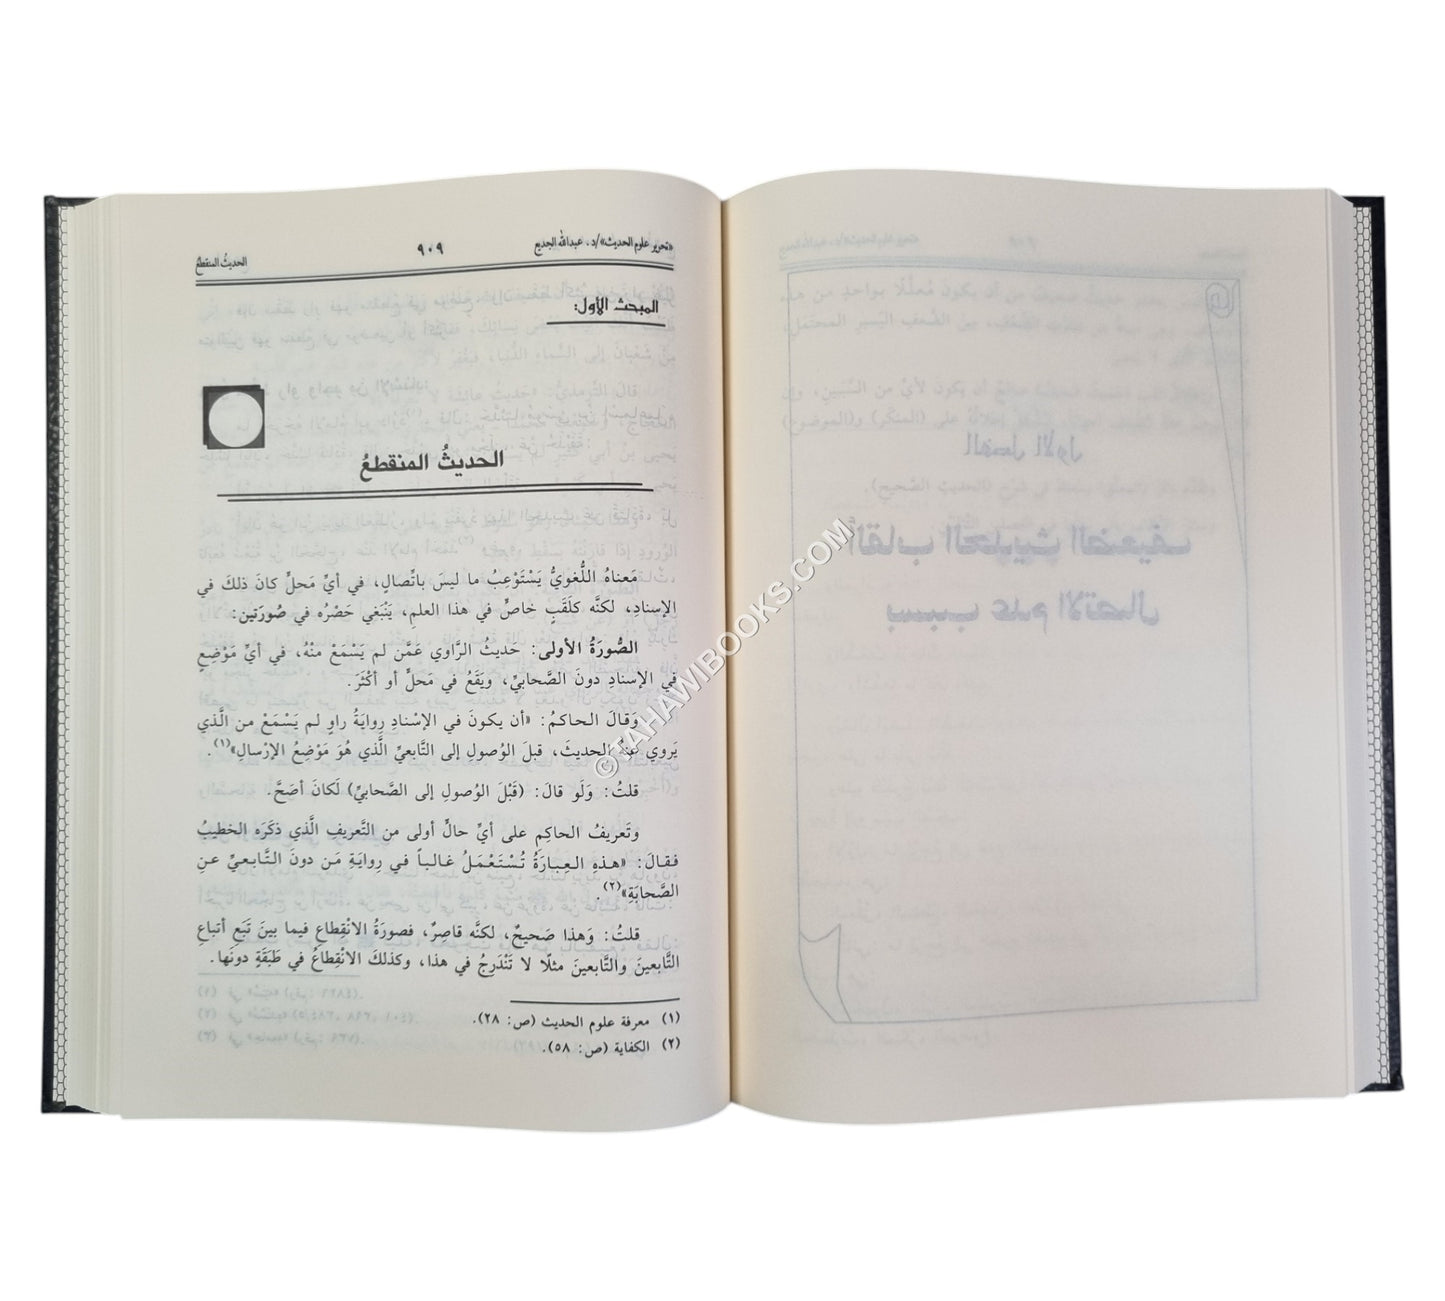 «تحرير علوم الحديث»/د. عبدالله الجديع
٩٠٩
الحديثُ المنقطعُ
المبحث الأول:
الحديثُ المنقطعُ
مَعناهُ اللُّغويُّ يَسْتَوْعِبُ ما ليسَ باتِّصالٍ، في أيِّ مَحِلٍّ كانَ ذلكَ في
الإسنادِ، لكنَّه كلَقَبٍ خاصٍّ في هذا العلمِ، يَنْبَغي حَصْرُه في صُورَتين:
الصُّورَةُ الأولى: حَديثُ الرَّاوي عَمَّن لم يَسْمَعْ منْهُ، في أيِّ مَوْضِعٍ
في الإسنادِ دونَ الصَّحابيِّ، ويَقَعُ في مَحلٍّ أو أكْثَرَ.
وَقالَ الحاكمُ: «أن يكونَ في الإسْنادِ رِوايَةُ راوٍ لم يَسْمَعْ من الَّذي
يَروي عنهُ الحديثَ، قبلَ الوُصولِ إلى التَّابعيِّ الَّذي هُوَ مَوْضِعُ الإرْسالِ»(١).
قلتُ: وَلَو قالَ: (قَبْلَ الوُصولِ إلى الصَّحابيِّ) لَكانَ أصَحَّ.
وتَعريفُ الحاكِم على أيِّ حالٍ أولى من التَّعريفِ الَّذي ذكَرَه الخطيبُ
فقالَ: «هذهِ العِبارَةُ تُسْتَعْمَلُ غالباً في رِوايَةِ مَن دونَ التَّابعيِّ عن
الصَّحابَةِ»(٢).
قلتُ: وَهذا صَحيحٌ، لكنَّه قاصِرٌ، فصورَةُ الانْقِطاعِ فيما بينَ تَبَعِ أتباعِ
التَّابعينَ والتَّابعينَ مثلًا لا تَنْدَرِجُ في هذا، وكذلكَ الانْقِطاعُ في طَبَقَةٍ دونَها.
(١) معرفة علوم الحديث (ص: ٢٨).
(٢) الكفاية (ص: ٥٨).
©TAHAWIBOOKS.COM